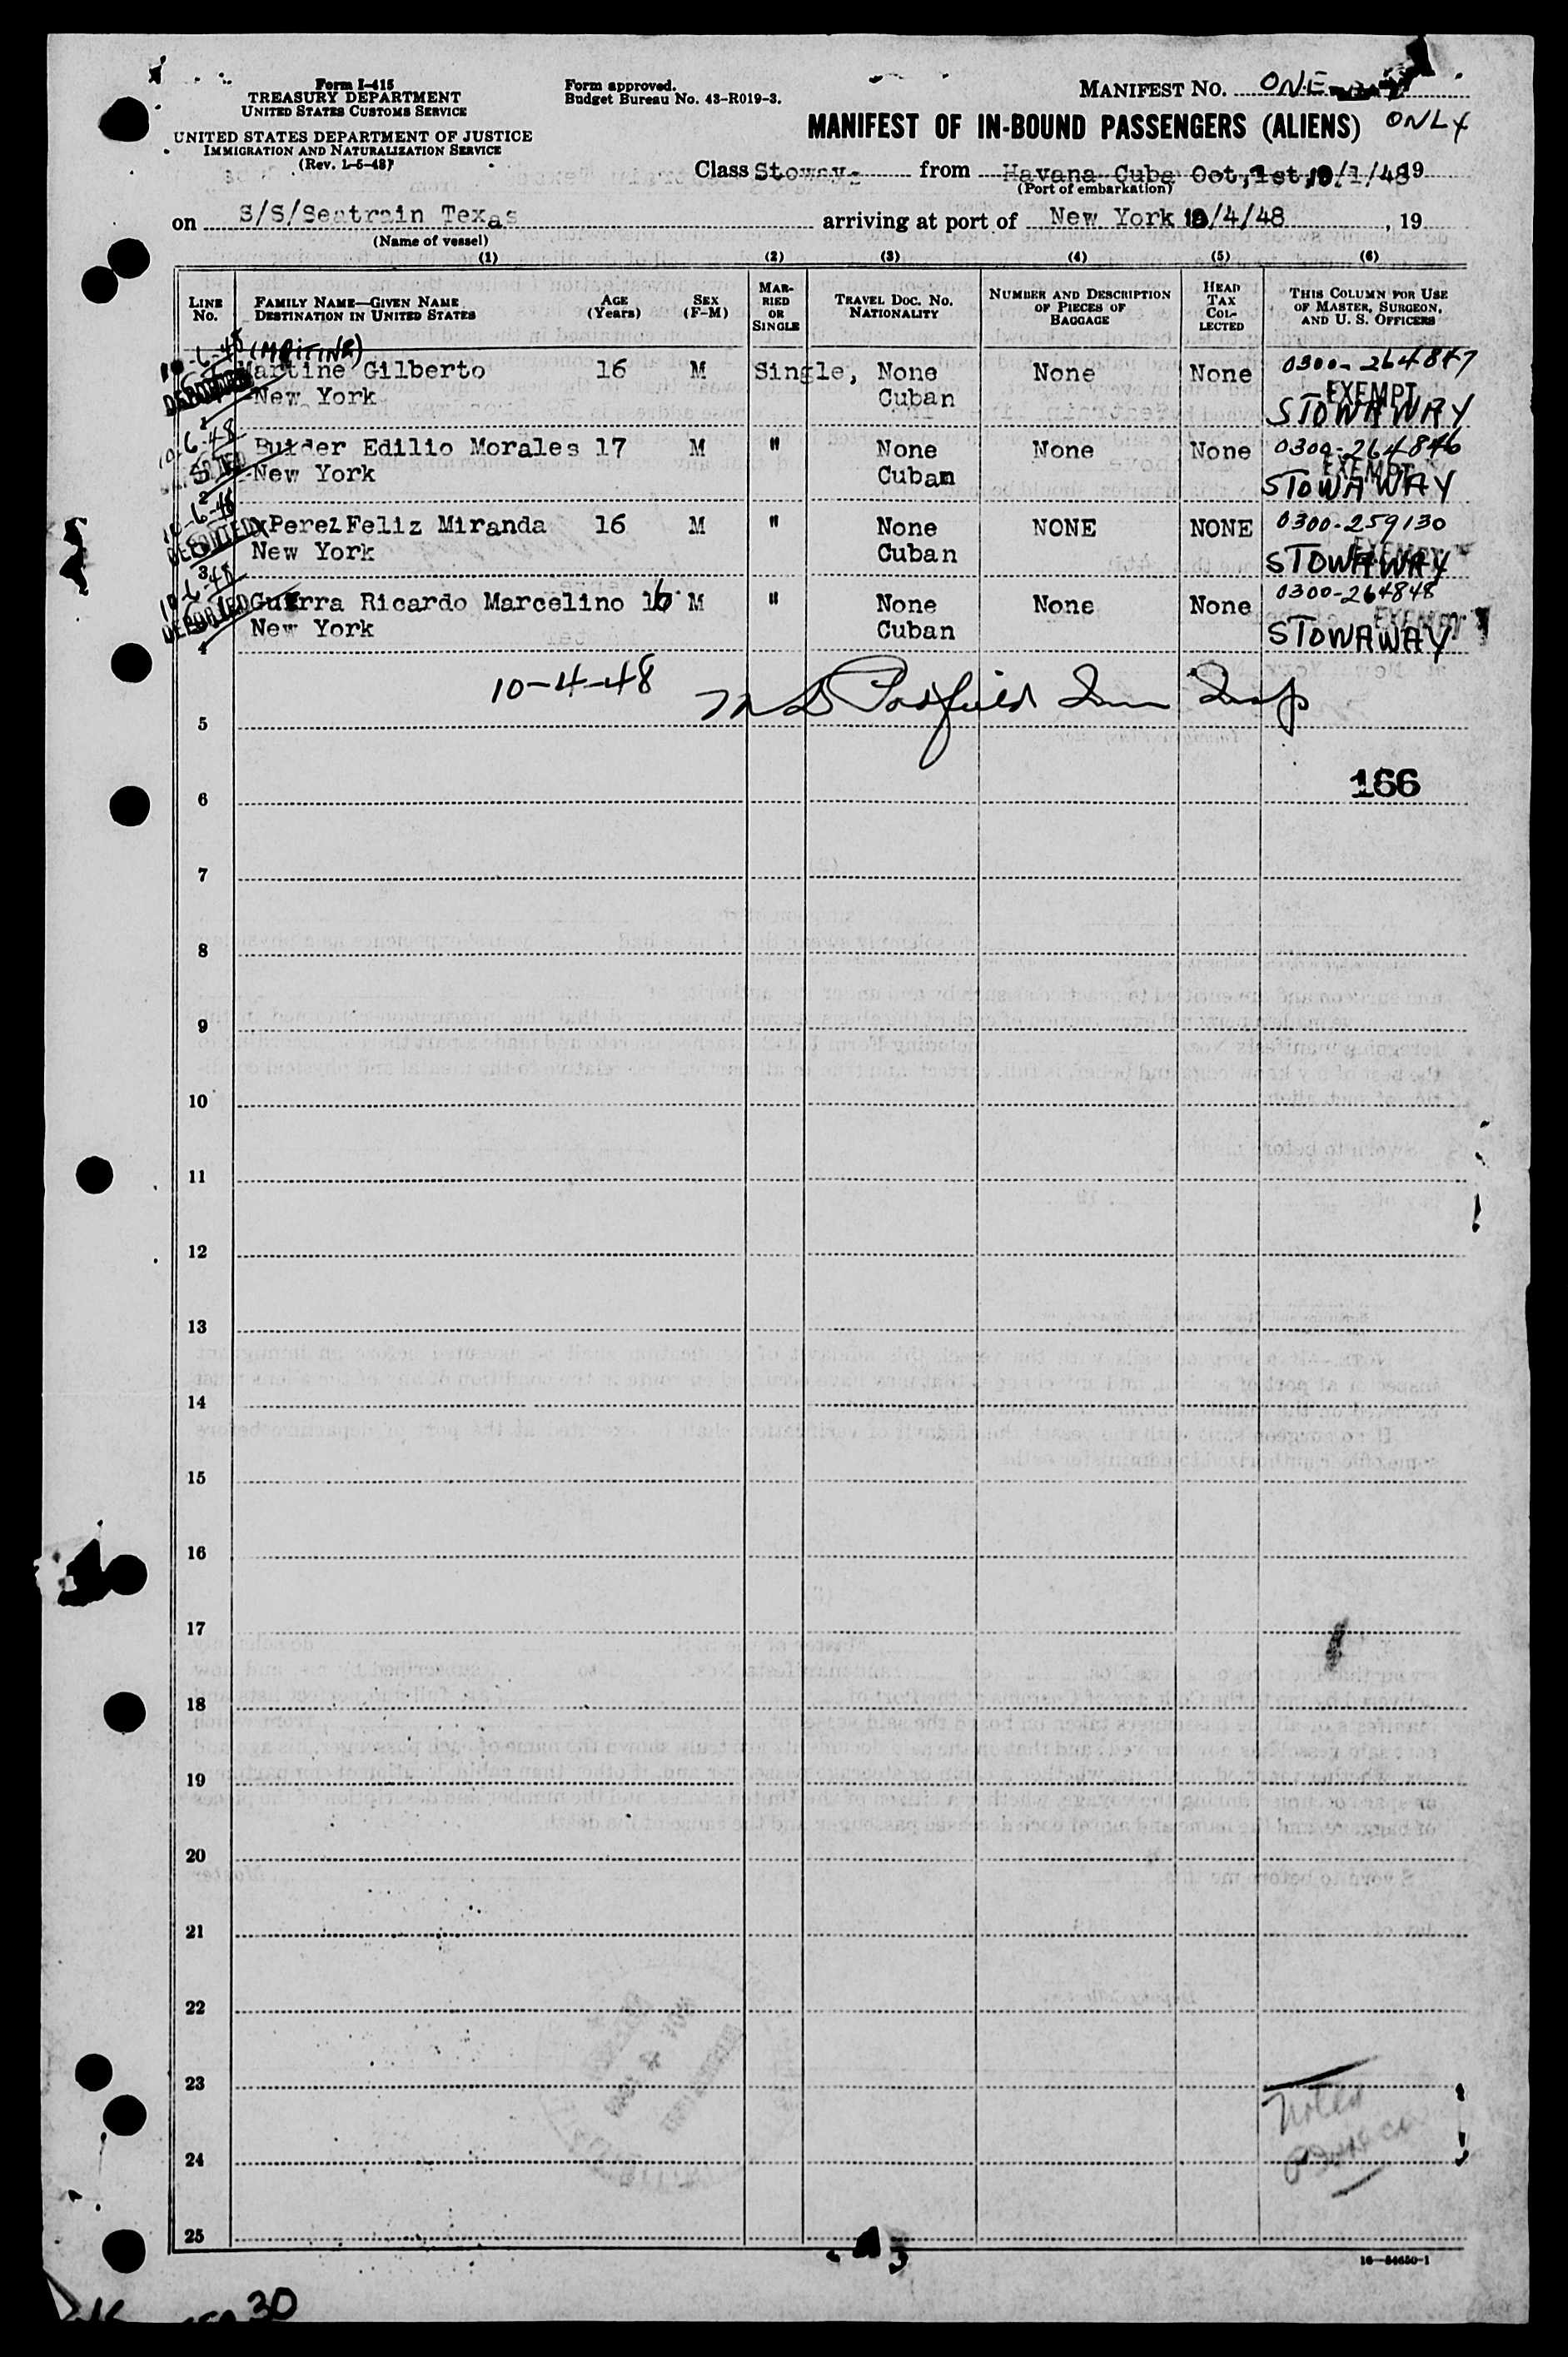 Form I-415
TREASURY DEPARTMENT
UNITED STATES CUSTOMS SERVICE
UNITED STATES DEPARTMENT OF JUSTICE
IMMIGRATION AND NATURALIZATION SERVICE
(Rev. 1-5-48)
Form approved.
Budget Bureau No. 43-R019-3.
MANIFEST NO. ONE
ONLY
MANIFEST OF IN-BOUND PASSENGERS (ALIENS)
Class Stoway from Havana Cuba Oct, 1st, 10/1/48 19
(Port of embarkation)
on S/S/Seatrain Texas arriving at port of New York 10/4/48, 19
(Name of vessel)
(1) (2) (3) (4) (5) (6)
LINE NO. FAMILY NAME—GIVEN NAME DESTINATION IN UNITED STATES AGE (Years) SEX (F-M) MARRIED OR SINGLE TRAVEL DOC. NO. NATIONALITY NUMBER AND DESCRIPTION OF PIECES OF BAGGAGE HEAD TAX COLLECTED THIS COLUMN FOR USE OF MASTER, SURGEON, AND U. S. OFFICERS
10-6-48
DEPORTED
Martine Gilberto 16 M Single, None None None 0300-264847
New York Cuban EXEMPT
STOWAWAY
1
10-6-48
Edilio Morales 17 M " None None None 0300-264846
New York Cuban EXEMPT
STOWAWAY
2
10-6-48
DEPORTED
x Perez Feliz Miranda 16 M " None NONE NONE 0300-259130
New York Cuban EXEMPT
STOWAWAY
3
10-6-48
DEPORTED
Guerra Ricardo Marcelino 16 M " None None None 0300-264848
New York Cuban EXEMPT
STOWAWAY
4
10-4-48 Imm Insp
5
166
6
7
8
9
10
11
12
13
14
15
16
17
18
19
20
21
22
23
Noted
24
25
16—54650-1
30